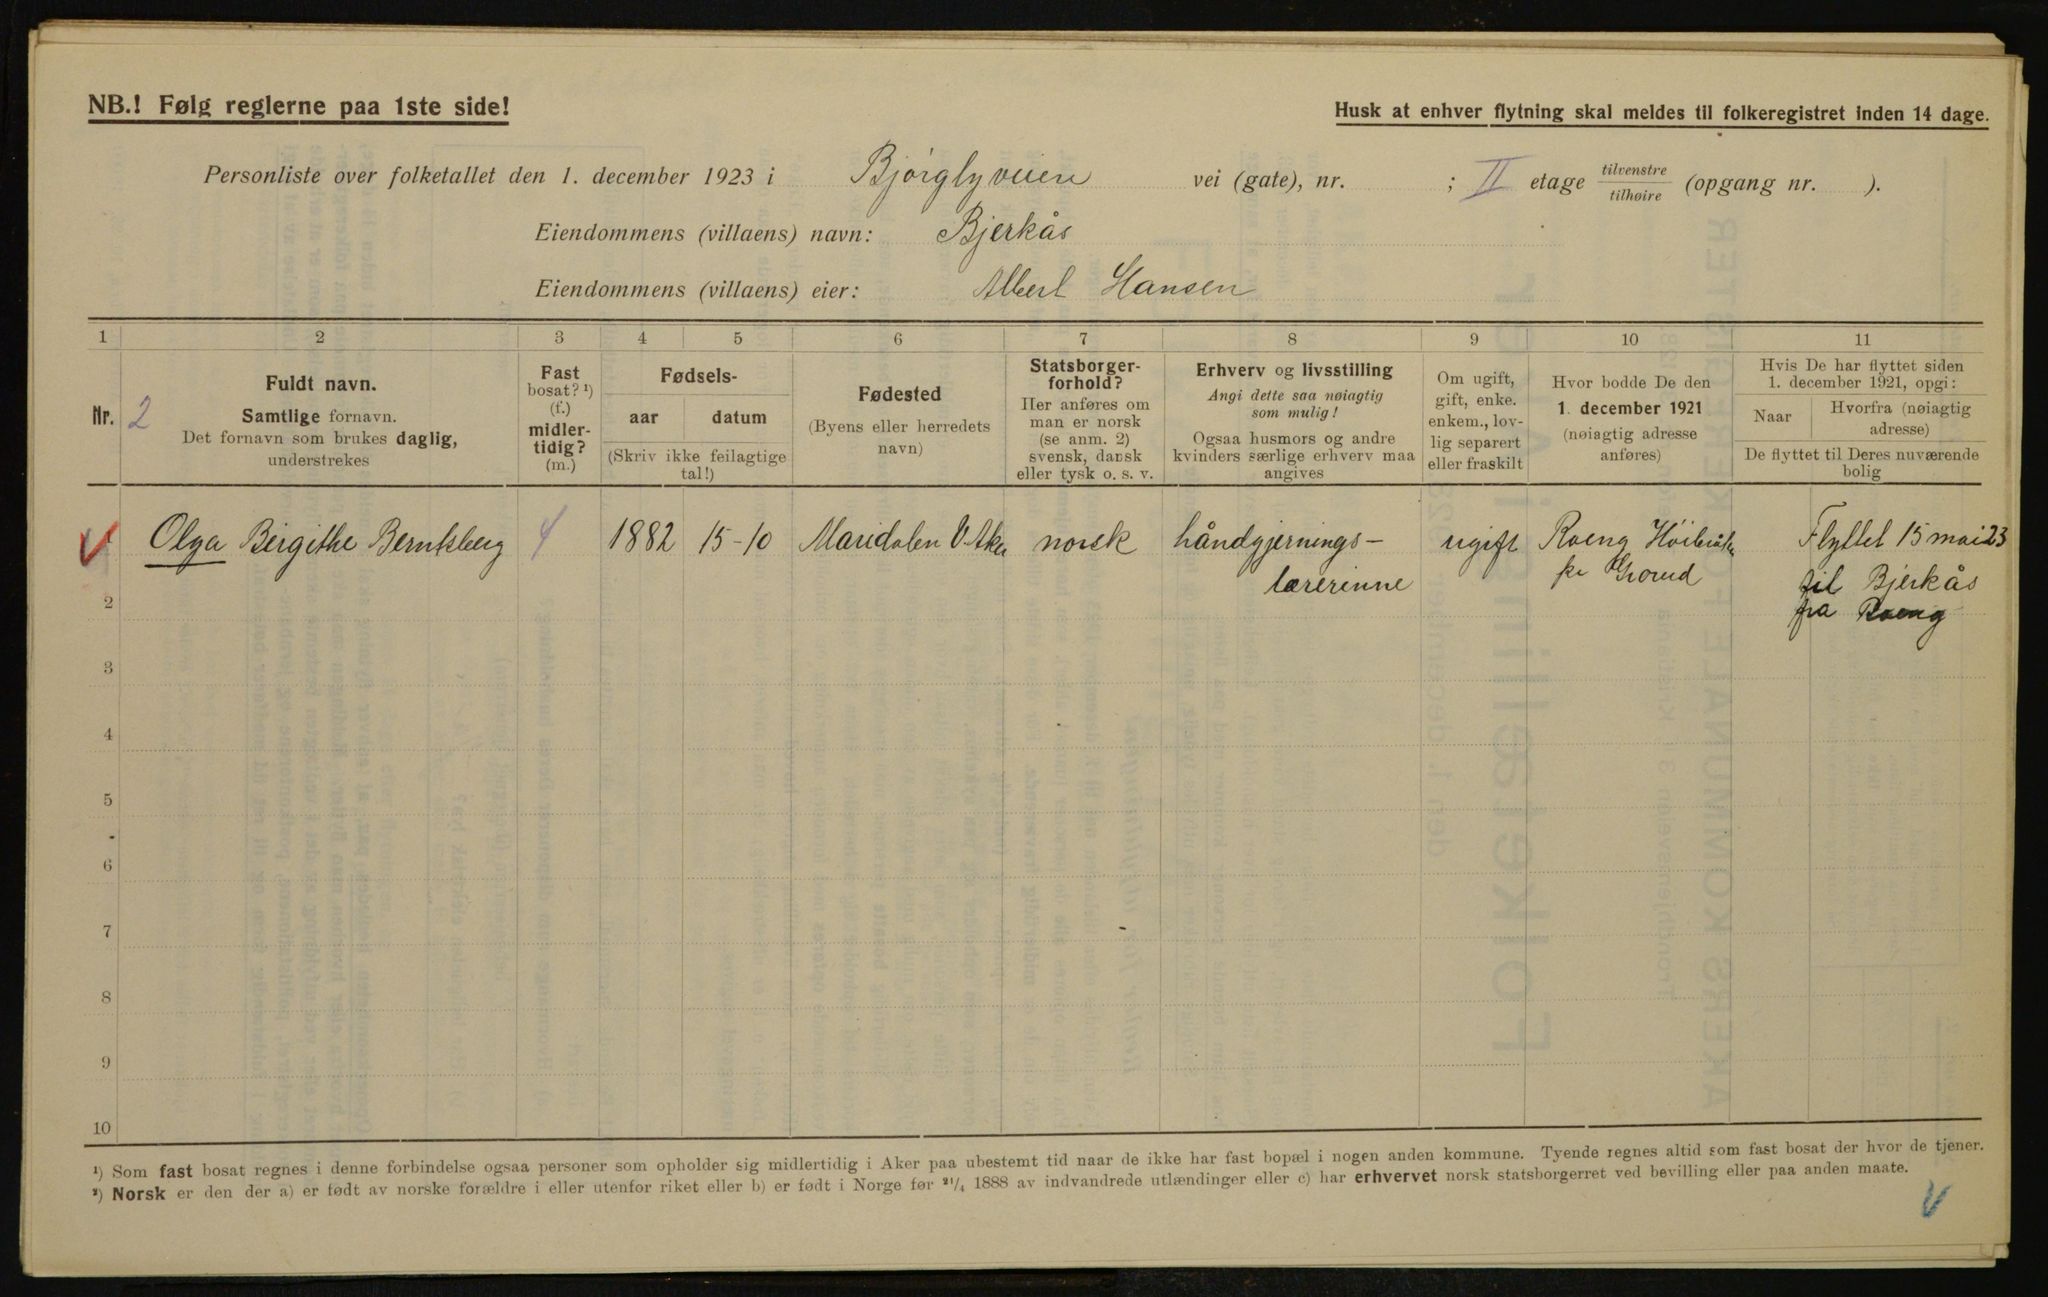 NB.! Følg reglerne paa 1ste side!
Husk at enhver flytning skal meldes til folkeregistret inden 14 dage.
Personliste over folketallet den 1. december 1923 i Bjørglyveien vei (gate), nr. ; II etage tilvenstre tilhøire (opgang nr. ).
Eiendommens (villaens) navn: Bjerkås
Eiendommens (villaens) eier: Albert Hansen
1 2 3 4 5 6 7 8 9 10 11
Nr. 2
Fuldt navn.
Samtlige fornavn.
Det fornavn som brukes daglig,
understrekes
Fast
bosat? ¹)
(f.)
midler-
tidig?
(m.)
Fødsels-
aar datum
(Skriv ikke feilagtige
tal!)
Fødested
(Byens eller herredets
navn)
Statsborger-
forhold?
Her anføres om
man er norsk
(se anm. 2)
svensk, dansk
eller tysk o. s. v.
Erhverv og livsstilling
Angi dette saa nøiagtig
som mulig!
Ogsaa husmors og andre
kvinders særlige erhverv maa
angives
Om ugift,
gift, enke.
enkem., lov-
lig separert
eller fraskilt
Hvor bodde De den
1. december 1921
(nøiagtig adresse
anføres)
Hvis De har flyttet siden
1. december 1921, opgi:
Naar Hvorfra (nøiagtig
adresse)
De flyttet til Deres nuværende
bolig
Olga Birgithe Berntsberg f 1882 15-10 Maridalen V-Aker norsk håndgjernings- ugift Roeng Flyttet 15 mai 23
lærerinne pr Grorud til Bjerkås
fra Roeng
2
3
4
5
6
7
8
9
10
¹) Som fast bosat regnes i denne forbindelse ogsaa personer som opholder sig midlertidig i Aker paa ubestemt tid naar de ikke har fast bopæl i nogen anden kommune. Tyende regnes altid som fast bosat der hvor de tjener.
²) Norsk er den der a) er født av norske forældre i eller utenfor riket eller b) er født i Norge før ²¹/₄ 1888 av indvandrede utlændinger eller c) har erhvervet norsk statsborgerret ved bevilling eller paa anden maate.